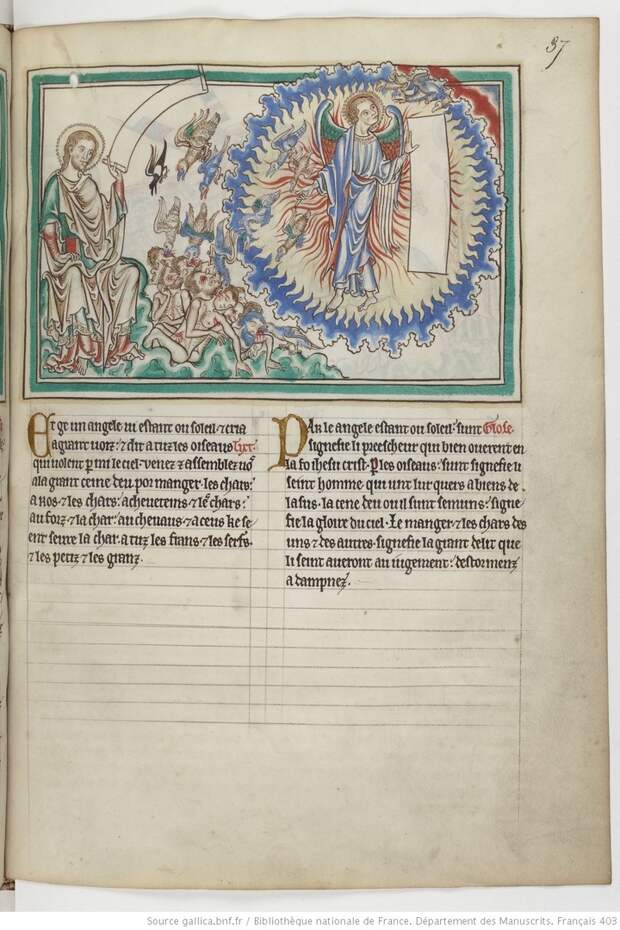 37
Et ge un angele ui estant ou soleil· ⁊ cria
a grant uoiz· ⁊ dit a tuz les oiseaus Tyxt·
qui uolent par mi le ciel· venez ⁊ assemblez uo9
a la grant ceine deu por manger· les chars
a Rois ⁊ les chars· a cheueteins ⁊ les chars·
au forz ⁊ la char· au cheuaus· ⁊ a ceus ke se
ent seure la char· a tuz les frans ⁊ les serfs·
⁊ les petiz ⁊ les granz·
Par le angele estant ou soleil· sunt Glose·
signefie li preescheur qui bien ouerent en
la foi ihesu crist· Ples oiseaus· sunt signefie li
seint homme qui unt lur quers a biens de
la sus· la cene deu ou il sunt semuns· signe
fie la gloire du ciel· Le manger ⁊ les chars des
uns ⁊ des autres· signefie la grant delit que
li seint aueront au iugement· des tormenz
a dampnez·
Source gallica.bnf.fr / Bibliothèque nationale de France. Département des Manuscrits. Français 403